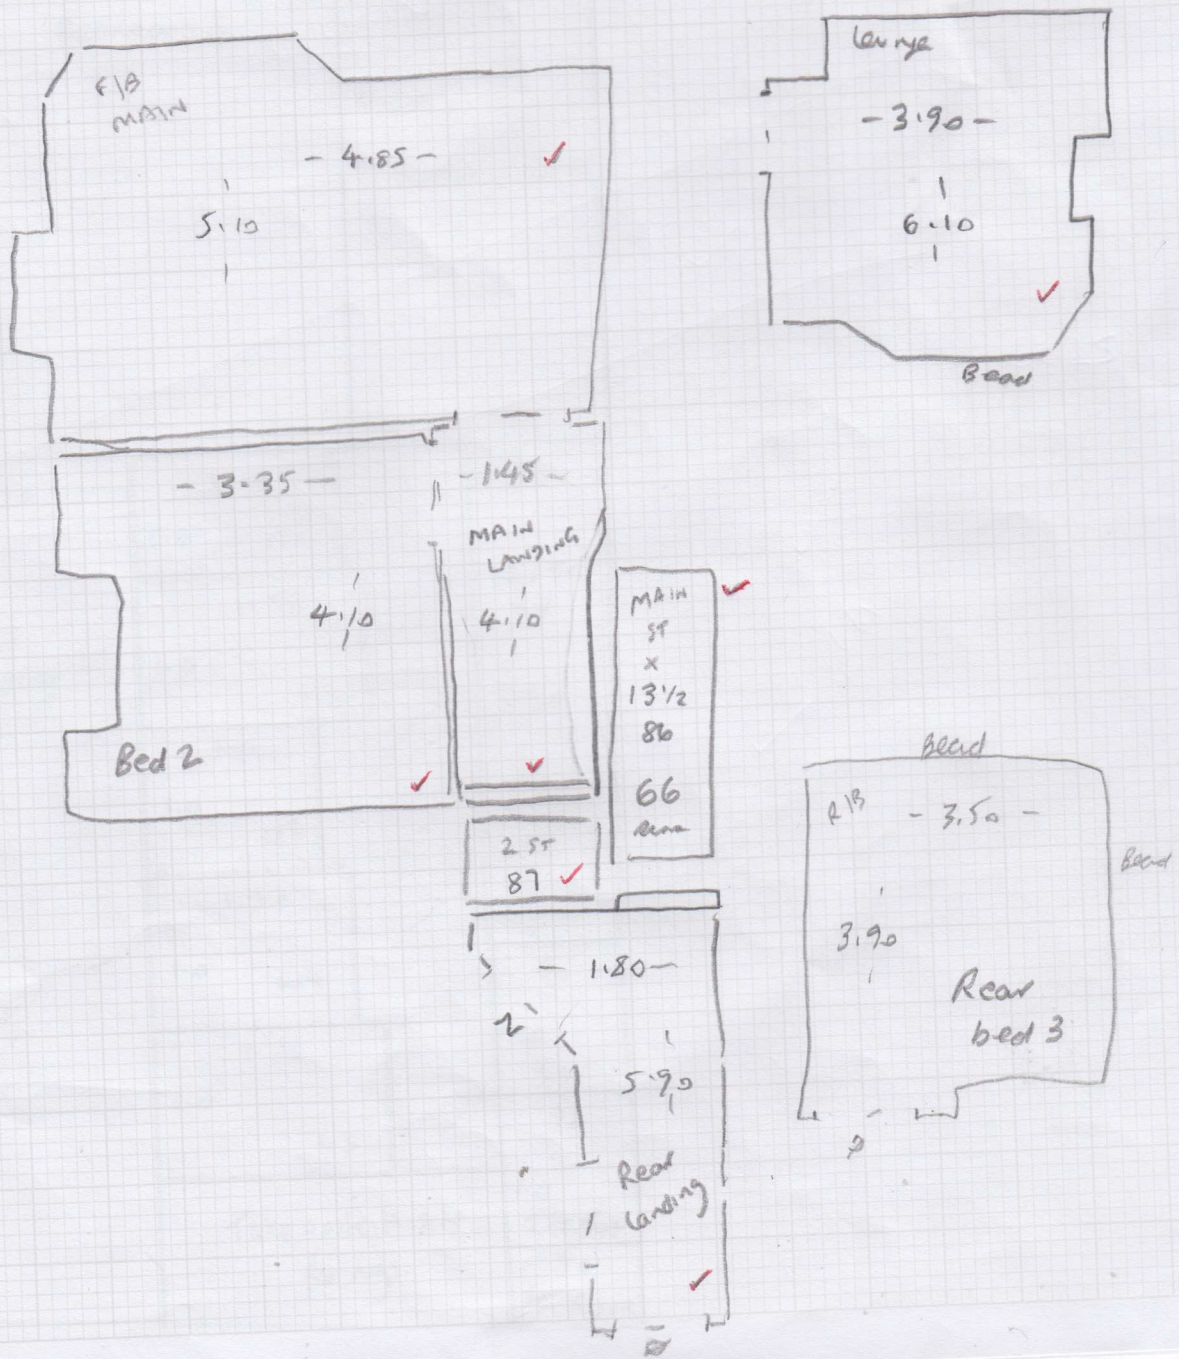 F/B
MAIN
- 4.85 -
5.10
Lounge
- 3.90 -
6.10
Bead
- 3.35 -
4.10
Bed 2
- 1.45 -
MAIN
LANDING
4.10
MAIN
ST
x
13 1/2
86
66
2 ST
87
- 1.80 -
5.90
Rear
Landing
Bead
R/B
- 3.50 -
Bead
3.90
Rear
bed 3